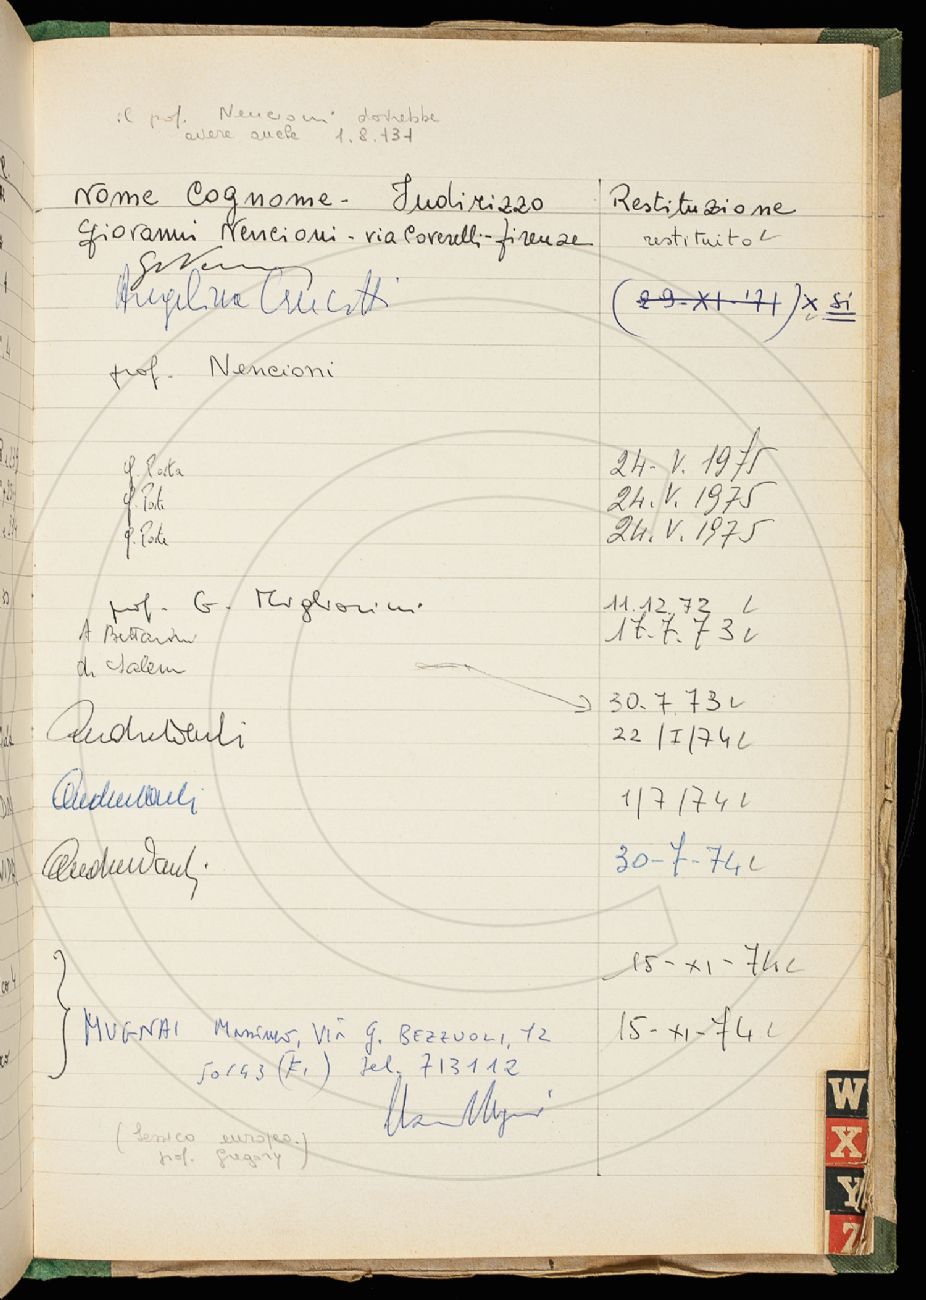 il prof. Nencioni dovrebbe
avere anche 1.8.131
Nome Cognome - Indirizzo Restituzione
Giovanni Nencioni - via Coverelli - firenze restituito
Angelina (29-XI-'71) x si
prof. Nencioni
24-V. 1975
24.V. 1975
24.V. 1975
prof. G. Migliorini 11.12.72
A Bettarini 17.7.73
di Salem
30.7.73
22/I/74
1/7/74
30-7-74
15-XI-74
MUGNAI Massimo, VIA G. BEZZUOLI, 12 15-XI-74
50143 (FI) tel. 713112
(Lessico europeo.
prof. Gregory)
W
X
Y
Z